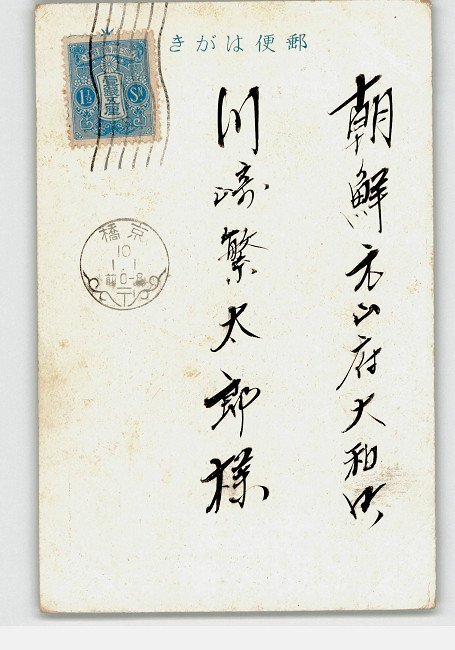 郵便はがき
朝鮮元山府大和町
川崎繁太郎様
1½ Sn
京橋
10
1.1
前0-8